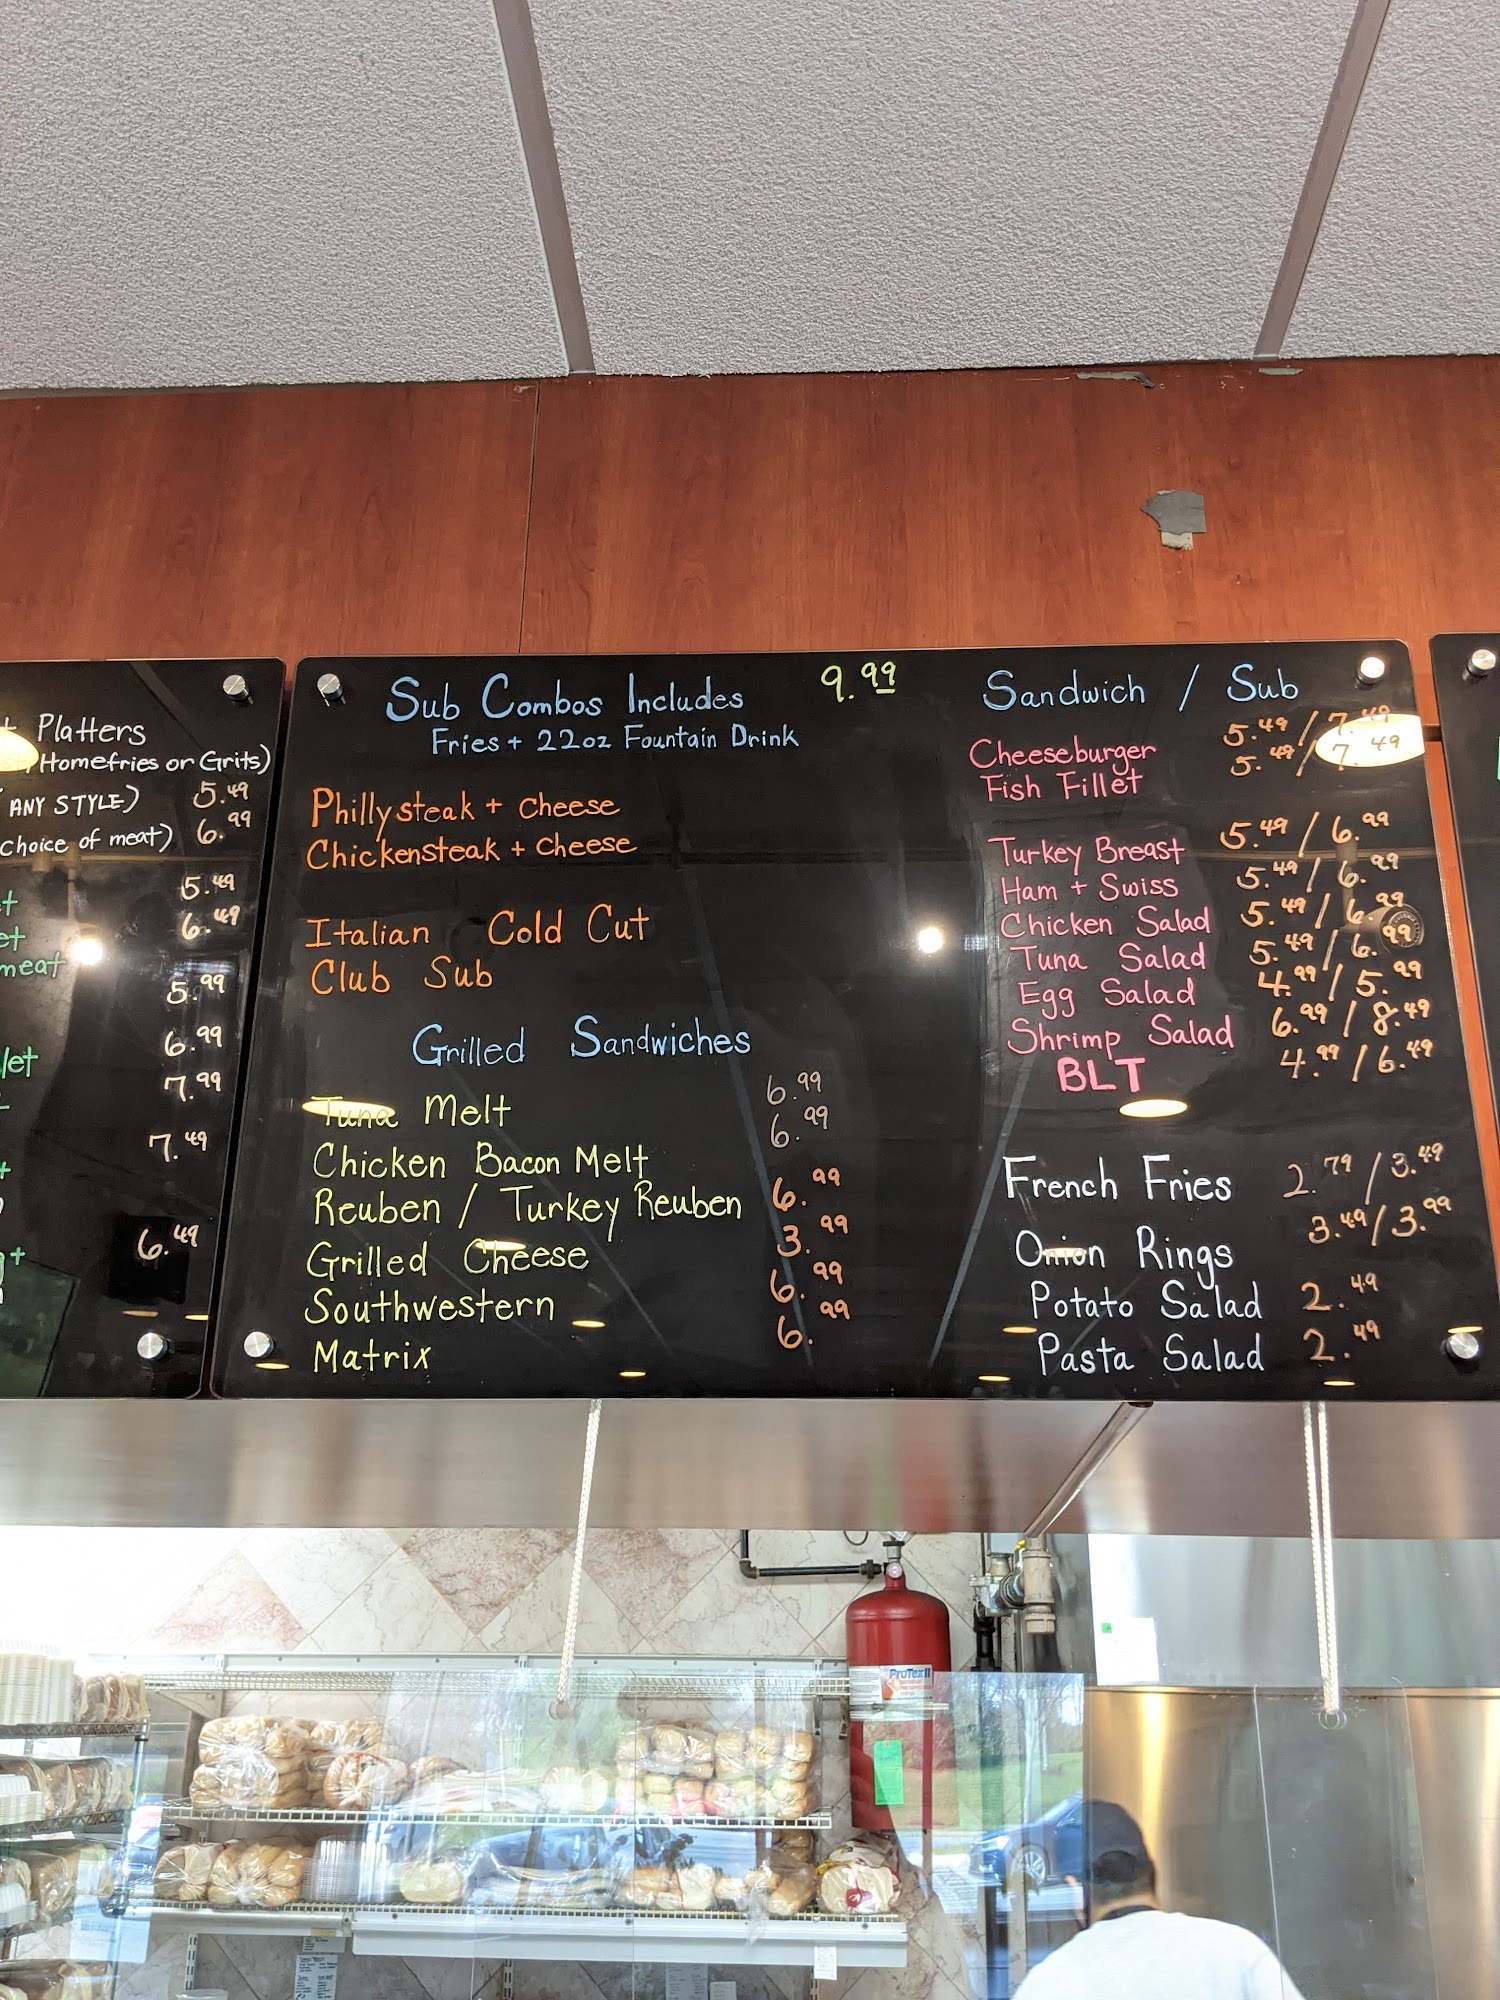 Platters
Homefries or Grits)
ANY STYLE) 5.49
choice of meat) 6.99
5.49
6.49
meat
5.99
6.99
7.99
7.49
6.49
Sub Combos Includes 9.99
Fries + 22oz Fountain Drink
Phillysteak + Cheese
Chickensteak + Cheese
Italian Cold Cut
Club Sub
Grilled Sandwiches
Tuna Melt 6.99
Chicken Bacon Melt 6.99
Reuben / Turkey Reuben 6.99
Grilled Cheese 3.99
Southwestern 6.99
Matrix 6.99
Sandwich / Sub
Cheeseburger 5.49 / 7.49
Fish Fillet 5.49 / 7.49
Turkey Breast 5.49 / 6.99
Ham + Swiss 5.49 / 6.99
Chicken Salad 5.49 / 6.99
Tuna Salad 5.49 / 6.99
Egg Salad 4.99 / 5.99
Shrimp Salad 6.99 / 8.49
BLT 4.99 / 6.49
French Fries 2.79 / 3.49
Onion Rings 3.49 / 3.99
Potato Salad 2.49
Pasta Salad 2.49
ProTex II